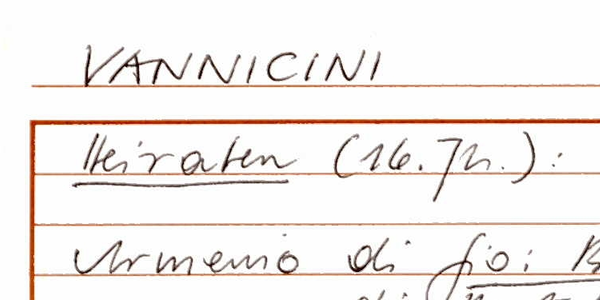 VANNICINI
Heiraten (16. Jh.):
Armenio di Gio:
di